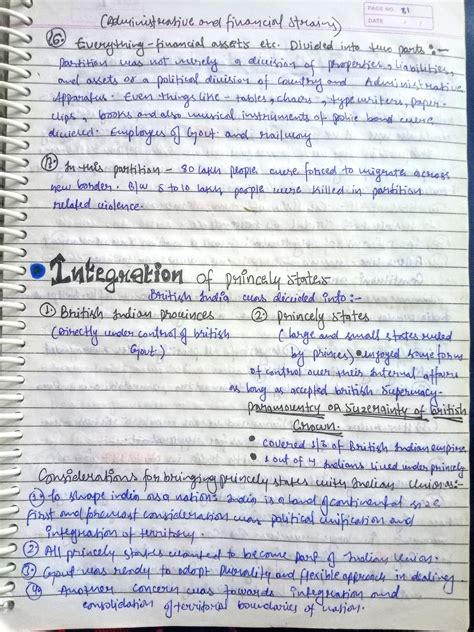 PAGE NO. 81
DATE
(Administrative and financial strains)
16. Everything - financial assets etc. Divided into two parts :-
partition was not merely a division of properties, liabilities,
and assets or a political division of country and Administrative
Apparatus. Even things like - tables, chairs, typewriters, paper-
clips, books and also musical instruments of police band were
divided. Employees of Govt. and railway
17. In this partition - 80 lakh people were forced to migrate across
new border. B/w 5 to 10 lakh people were killed in partition
related violence.
Integration of princely states
British India was divided into :-
1. British Indian provinces
(Directly under control of british
Govt.)
2. Princely states
(large and small states ruled
by princes) enjoyed some form
of control over their internal affairs
as long as accepted british supermacy.
paramountcy or Suzerainty of british
Crown.
• covered 1/3 of British Indian empire
• 1 out of 4 Indians lived under princely
Considerations for bringing princely states with Indian Union :-
1. to shape india as a nation: India is a land of continental size
First and foremost consideration was political unification and
integration of territory.
2. All princely states wanted to become part of Indian Union.
3. Govt was ready to adopt plurality and flexible approach in dealing
4. Another concern was towards integration and
consolidation of territorial boundaries of nation.